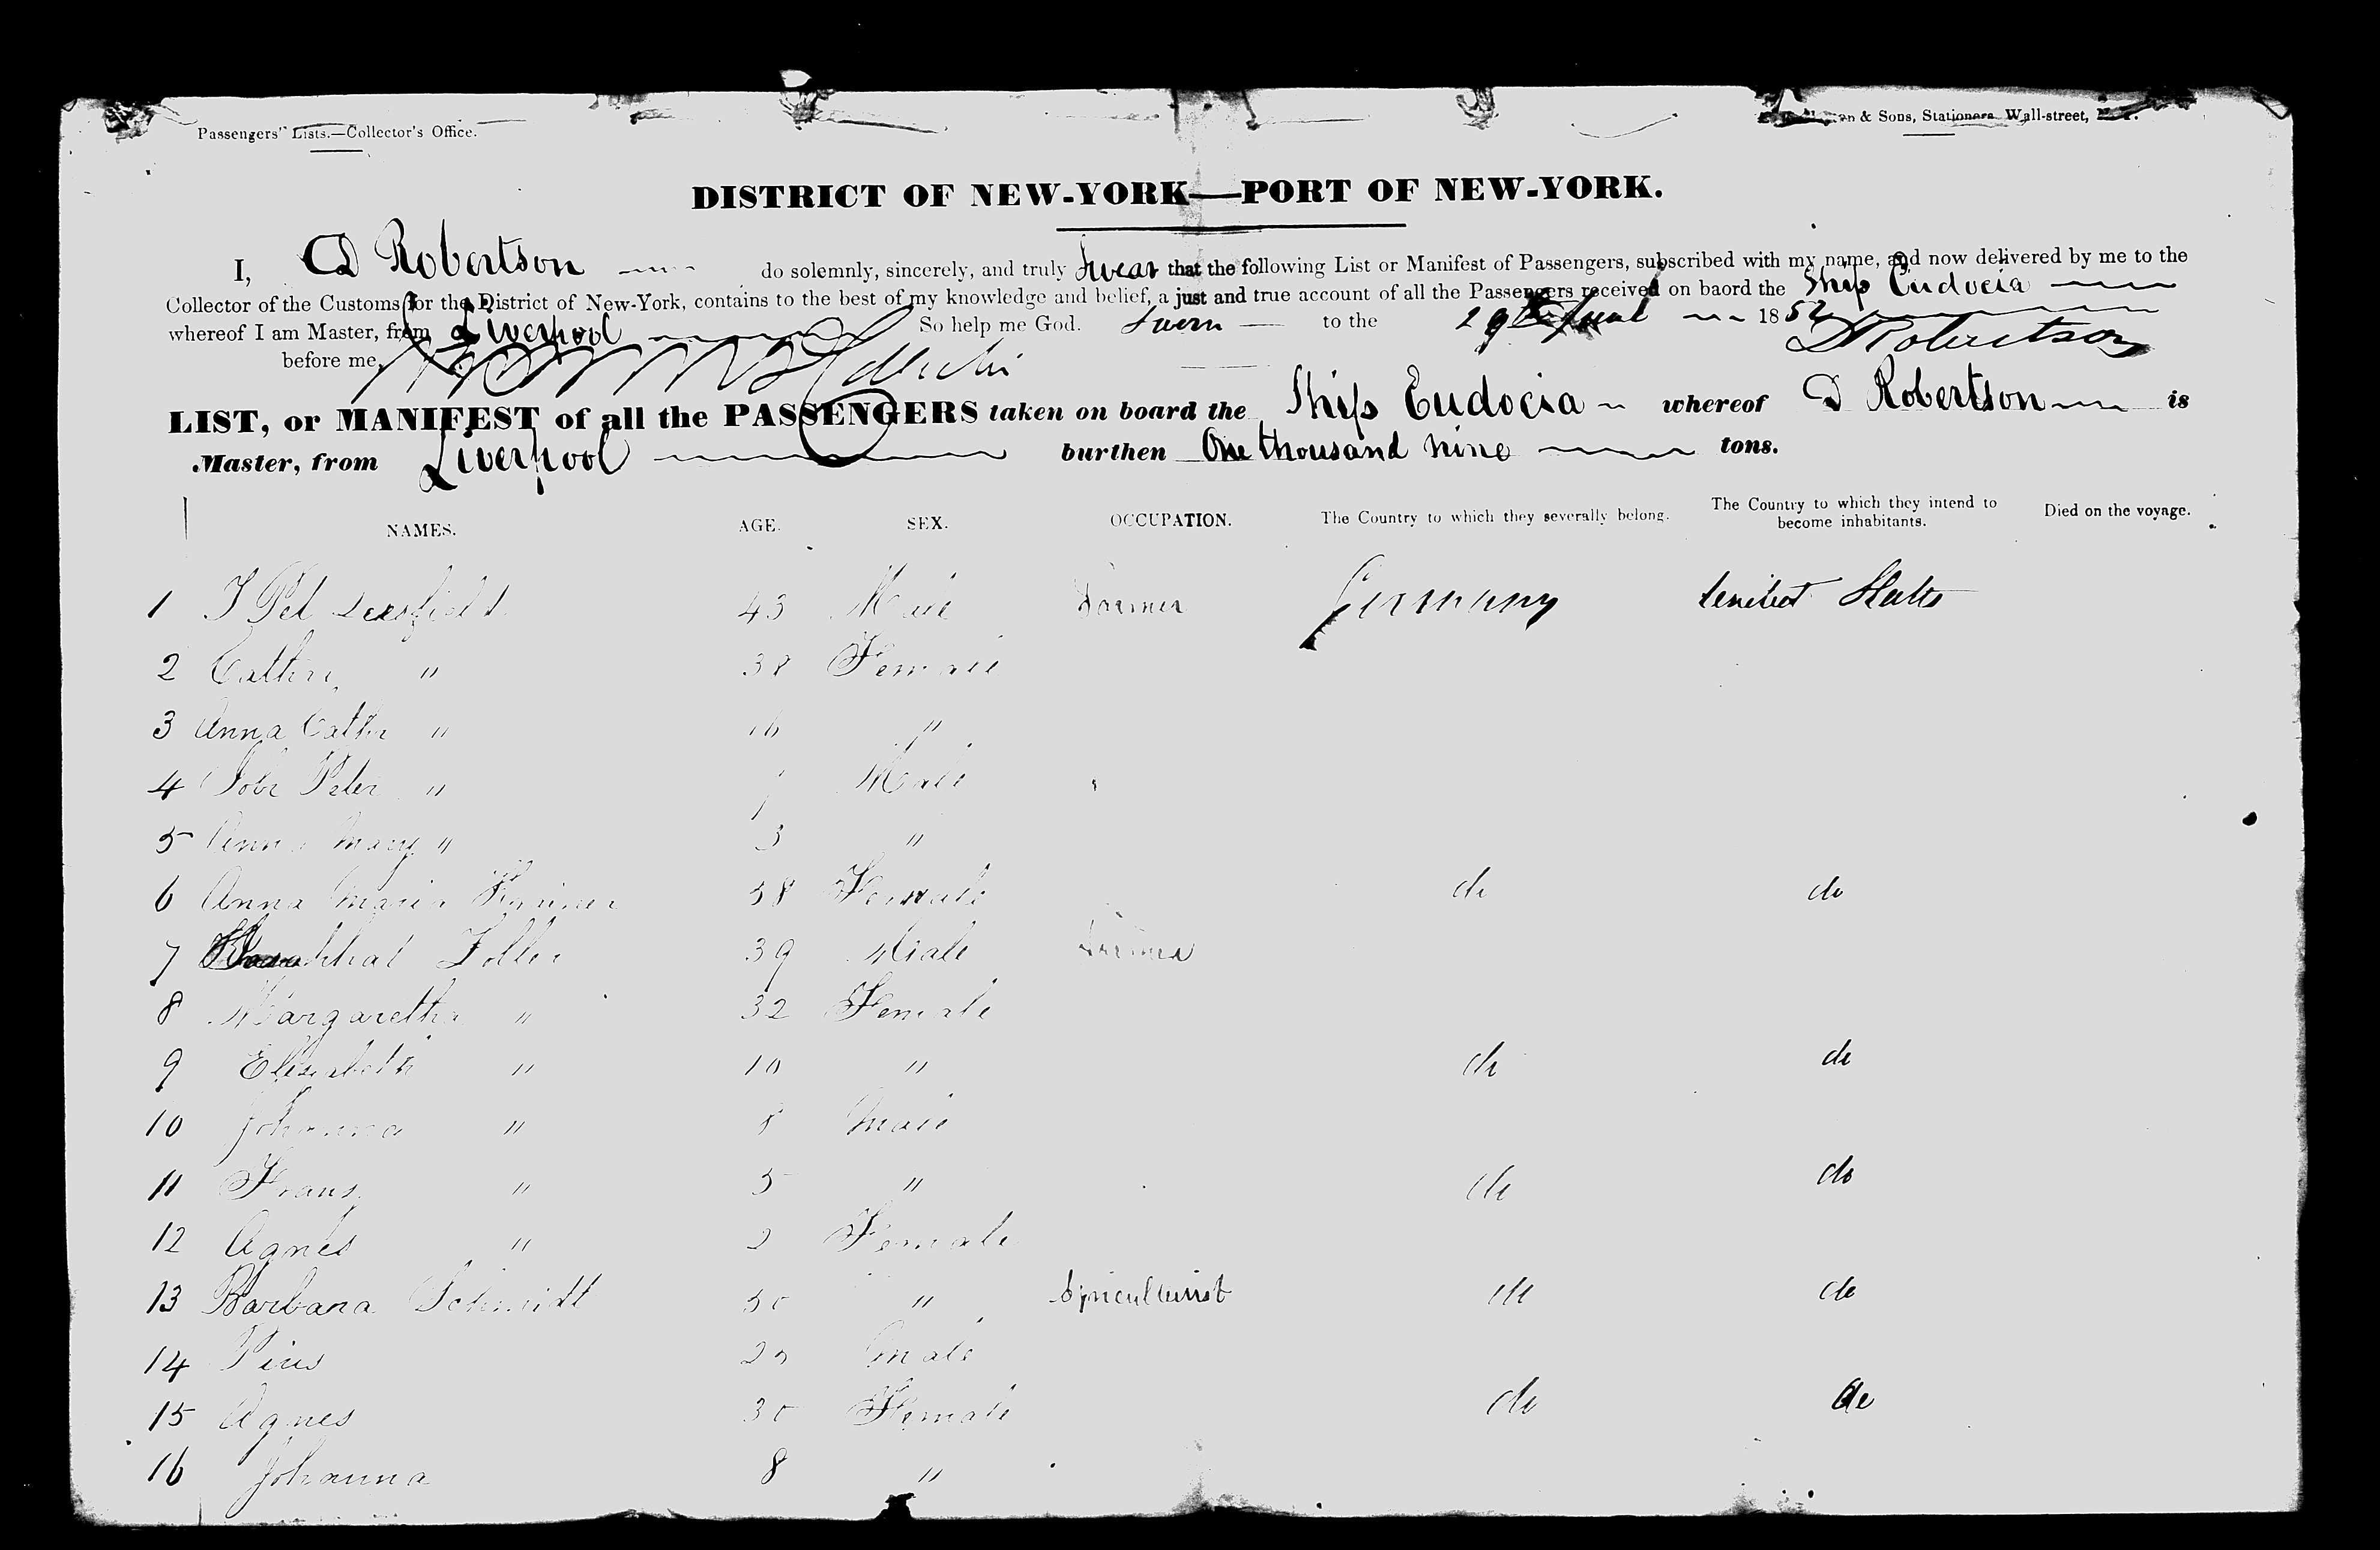 Passengers" Lists.—Collector's Office.
& Sons, Stationers Wall-street,
DISTRICT OF NEW-YORK—PORT OF NEW-YORK.
I, D Robertson do solemnly, sincerely, and truly Swear that the following List or Manifest of Passengers, subscribed with my name, and now delivered by me to the
Collector of the Customs for the District of New-York, contains to the best of my knowledge and belief, a just and true account of all the Passengers received on baord the Ship Eudocia
whereof I am Master, from Liverpool So help me God. Sworn to the 29th 1852
before me, D Robertson
LIST, or MANIFEST of all the PASSENGERS taken on board the Ship Eudocia whereof D Robertson is
Master, from Liverpool burthen One thousand nine tons.
NAMES. AGE. SEX. OCCUPATION. The Country to which they severally belong. The Country to which they intend to become inhabitants. Died on the voyage.
1 43 Male Farmer Germany United States
2 Cathr " 38 Female
3 Anna Cathr " 16 "
4 Peter " Male
5 Anna Mary " 3 "
6 Anna Maria 38 Female do do
7 Zoller 39 Male Farmer
8 Margaretha " 32 Female
9 Elisabeth " 10 " do do
10 Johanna " 8 Male
11 Frans " 5 " do do
12 Agnes " 2 Female
13 Barbara Schmidt 50 " do do
14 Pius Male
15 Agnes 30 Female do do
16 Johanna 8 "